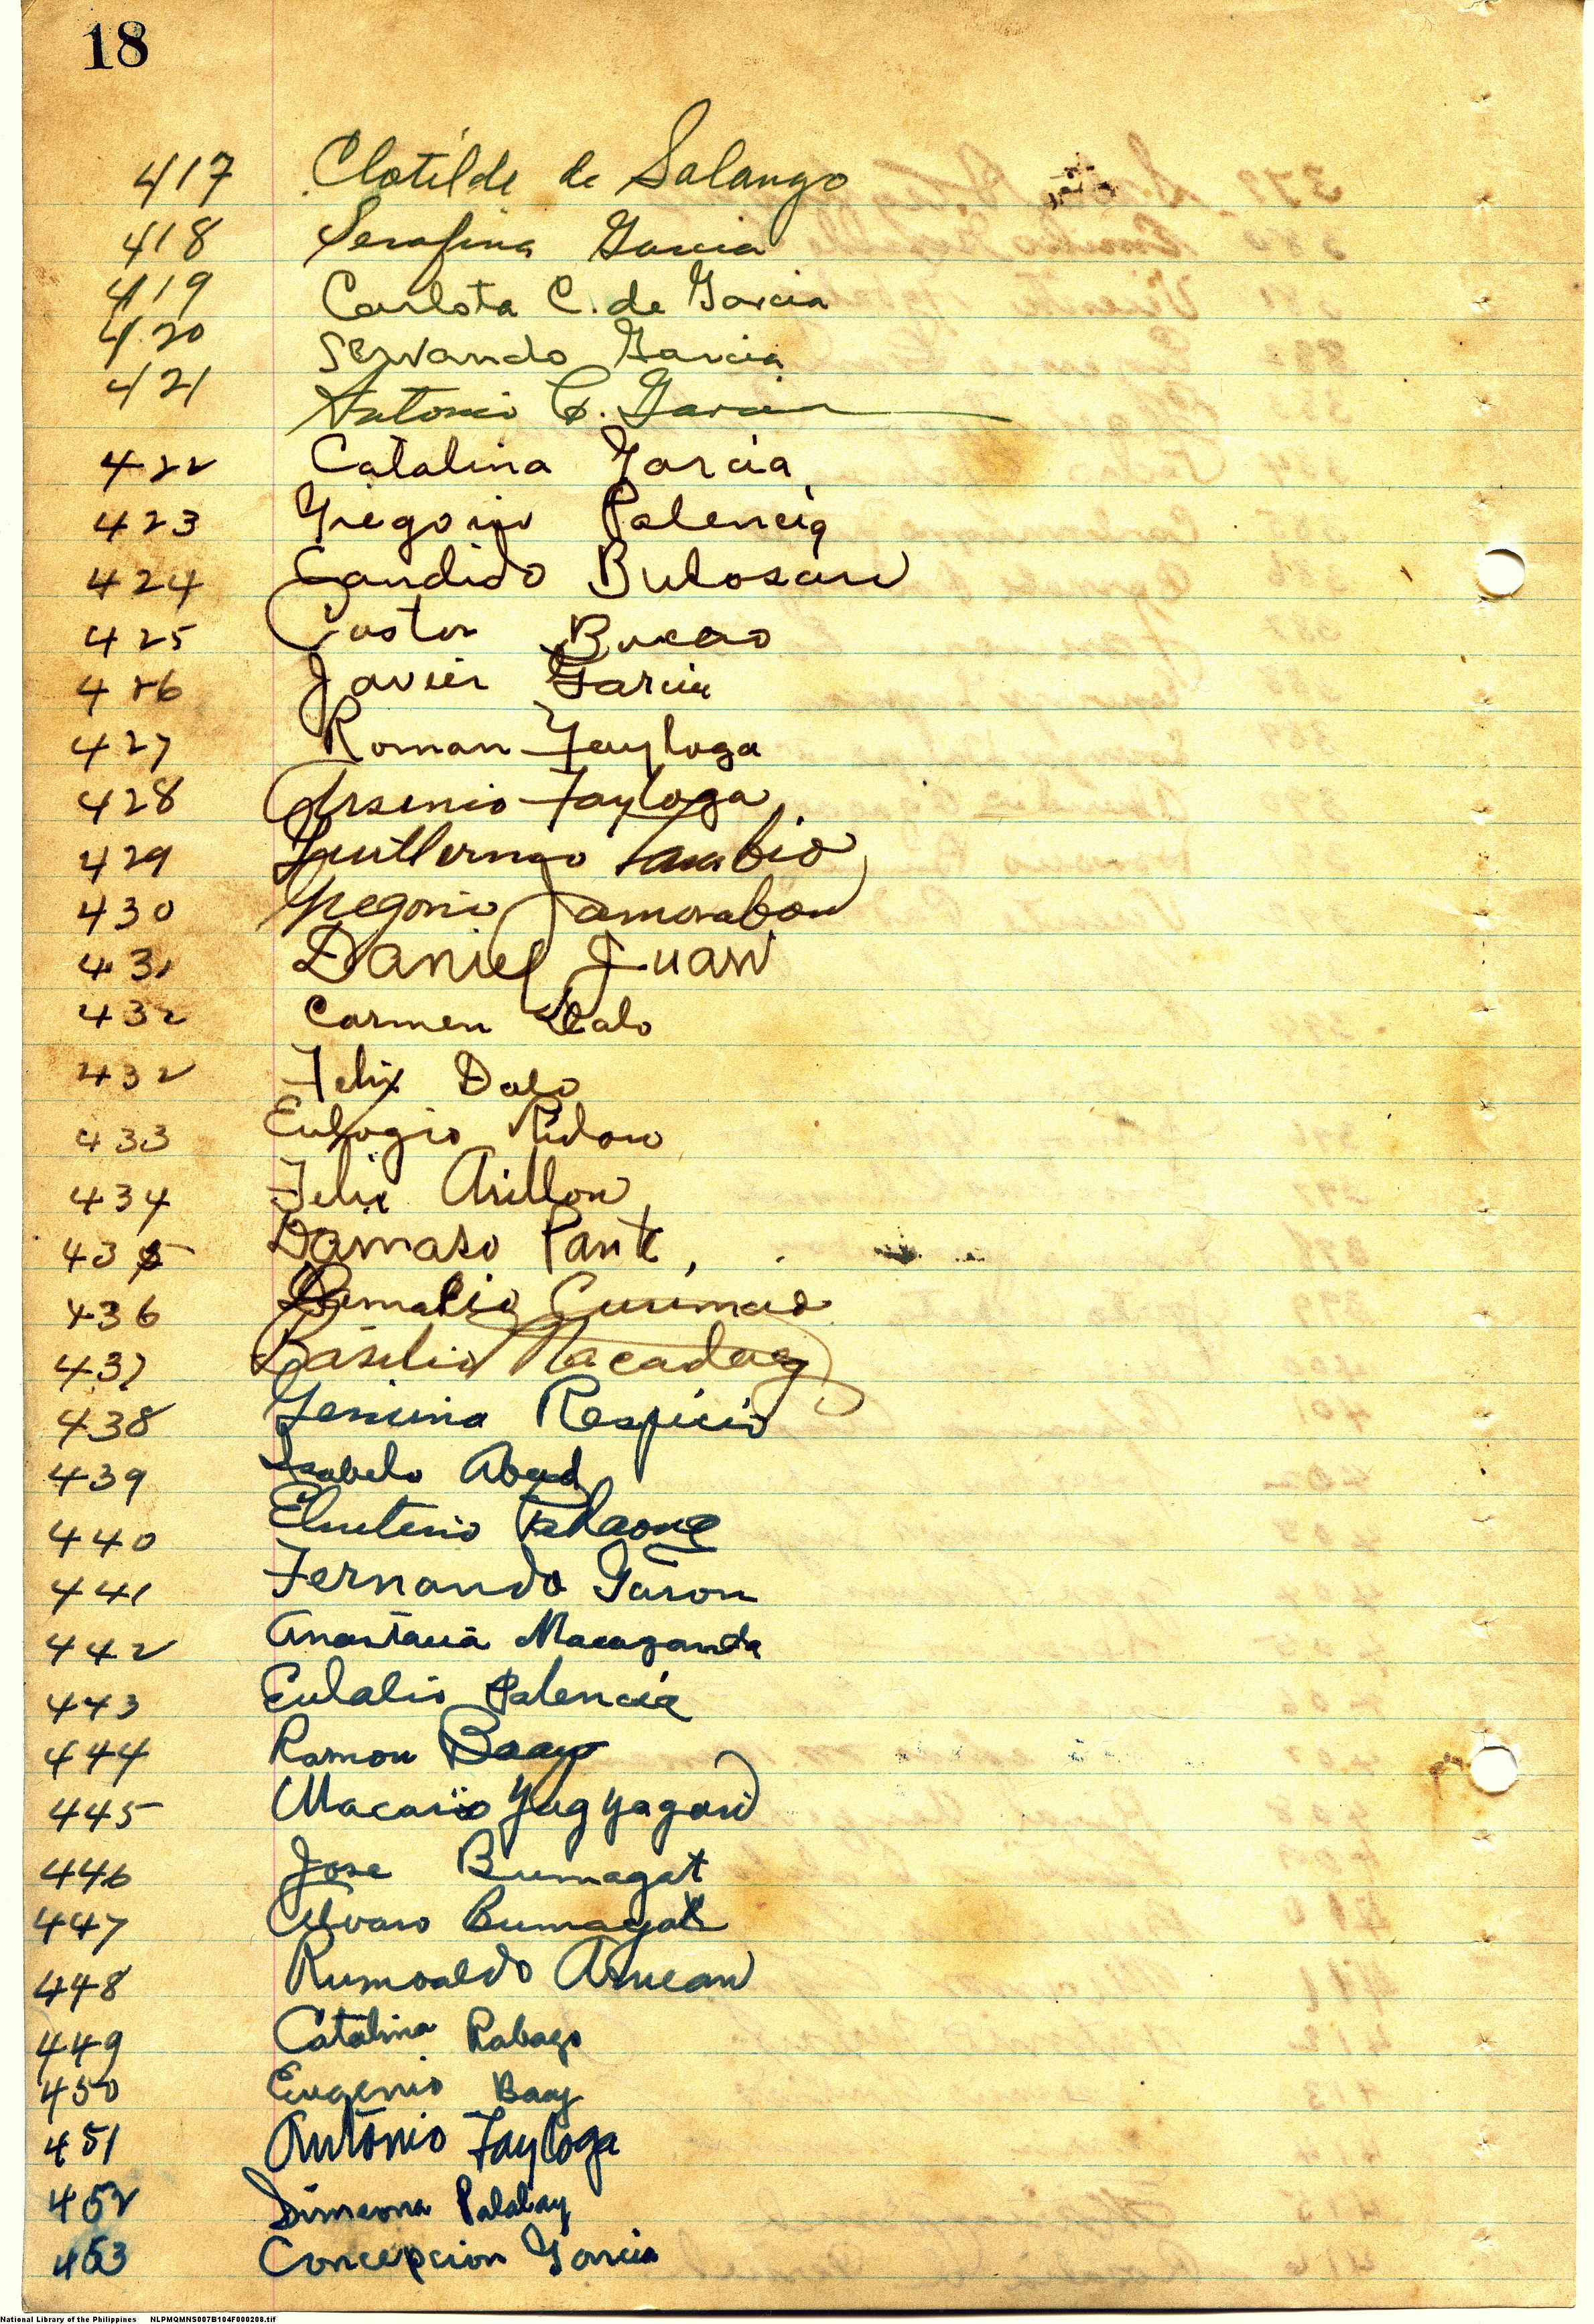 18
417 Clotilde de Salango
418 Serafina Garcia
419 Carlota C. de Garcia
420 Servando Garcia
421 Antonio C. Garcia
422 Catalina Garcia
423 Gregorio Palencia
424 Candido Bulosan
425 Castor Bucao
426 Javier Garcia
427 Roman Tayloga
428 Arsenio Tayloga
429 Guillermo
430 Gregorio
431 Daniel Juan
432 Carmen Dalo
432 Felix Dalo
433 Eulogio
434 Felix Arillon
435 Damaso
436
437 Basilio Macadaeg
438 Respicio
439 Isabelo Abad
440 Eluterio
441 Fernando
442 Anastacia Macaganda
443 Eulalio Palencia
444 Ramon Baay
445 Macario Yagyagan
446 Jose Bumagat
447 Alvaro Bumagat
448 Rumoaldo
449 Catalina Rabago
450 Eugenio Baay
451 Antonio Tayloga
452 Simeona Palalay
453 Concepcion Garcia
National Library of the Philippines NLPMQMNS007B104F000208.tif